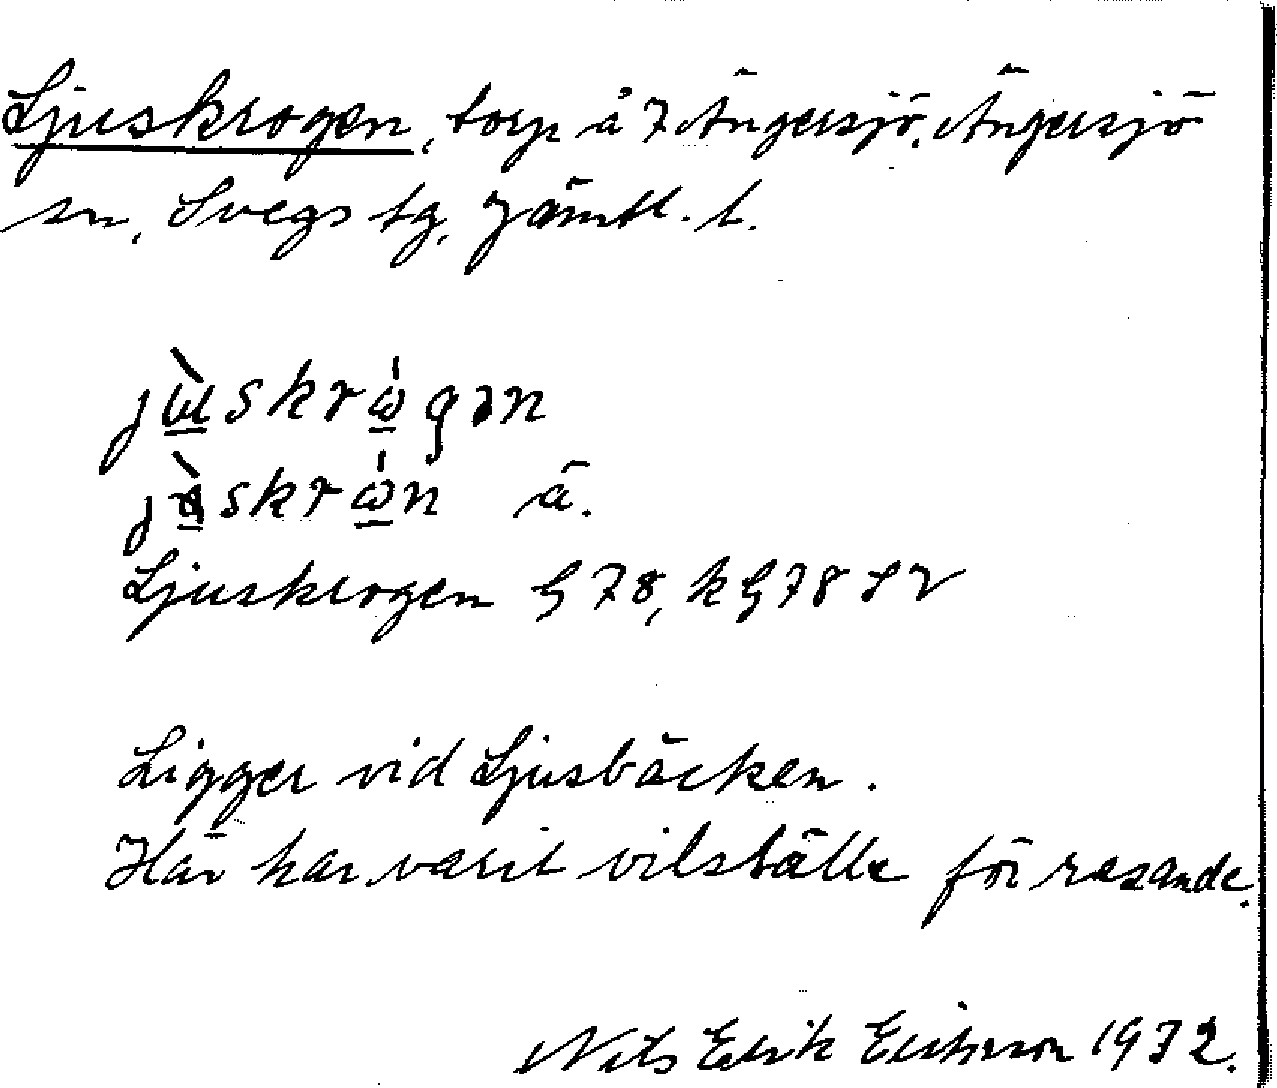 Ljuskrogen, torp å 7 Ängersjö, Ängersjö
sn, Svegs tg, Jämtl. l.
jùskrὼgən
jùskrὼn ä.
Ljuskrogen G 78, k G 78 S V
Ligger vid Ljusbäcken.
Här har varit vilställe för resande.
Nils Erik Eriksson 1932.